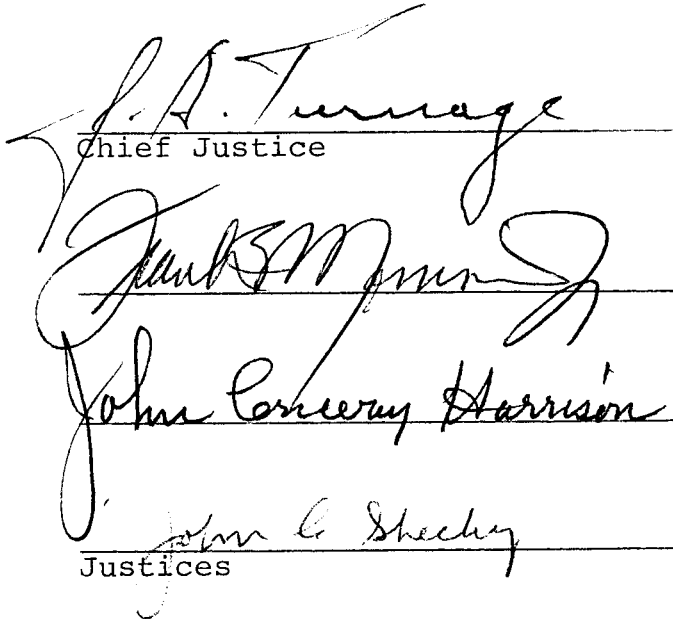 J. A. Turnage
Chief Justice
Frank B Morrison Jr
John Conway Harrison
John C Sheehy
Justices